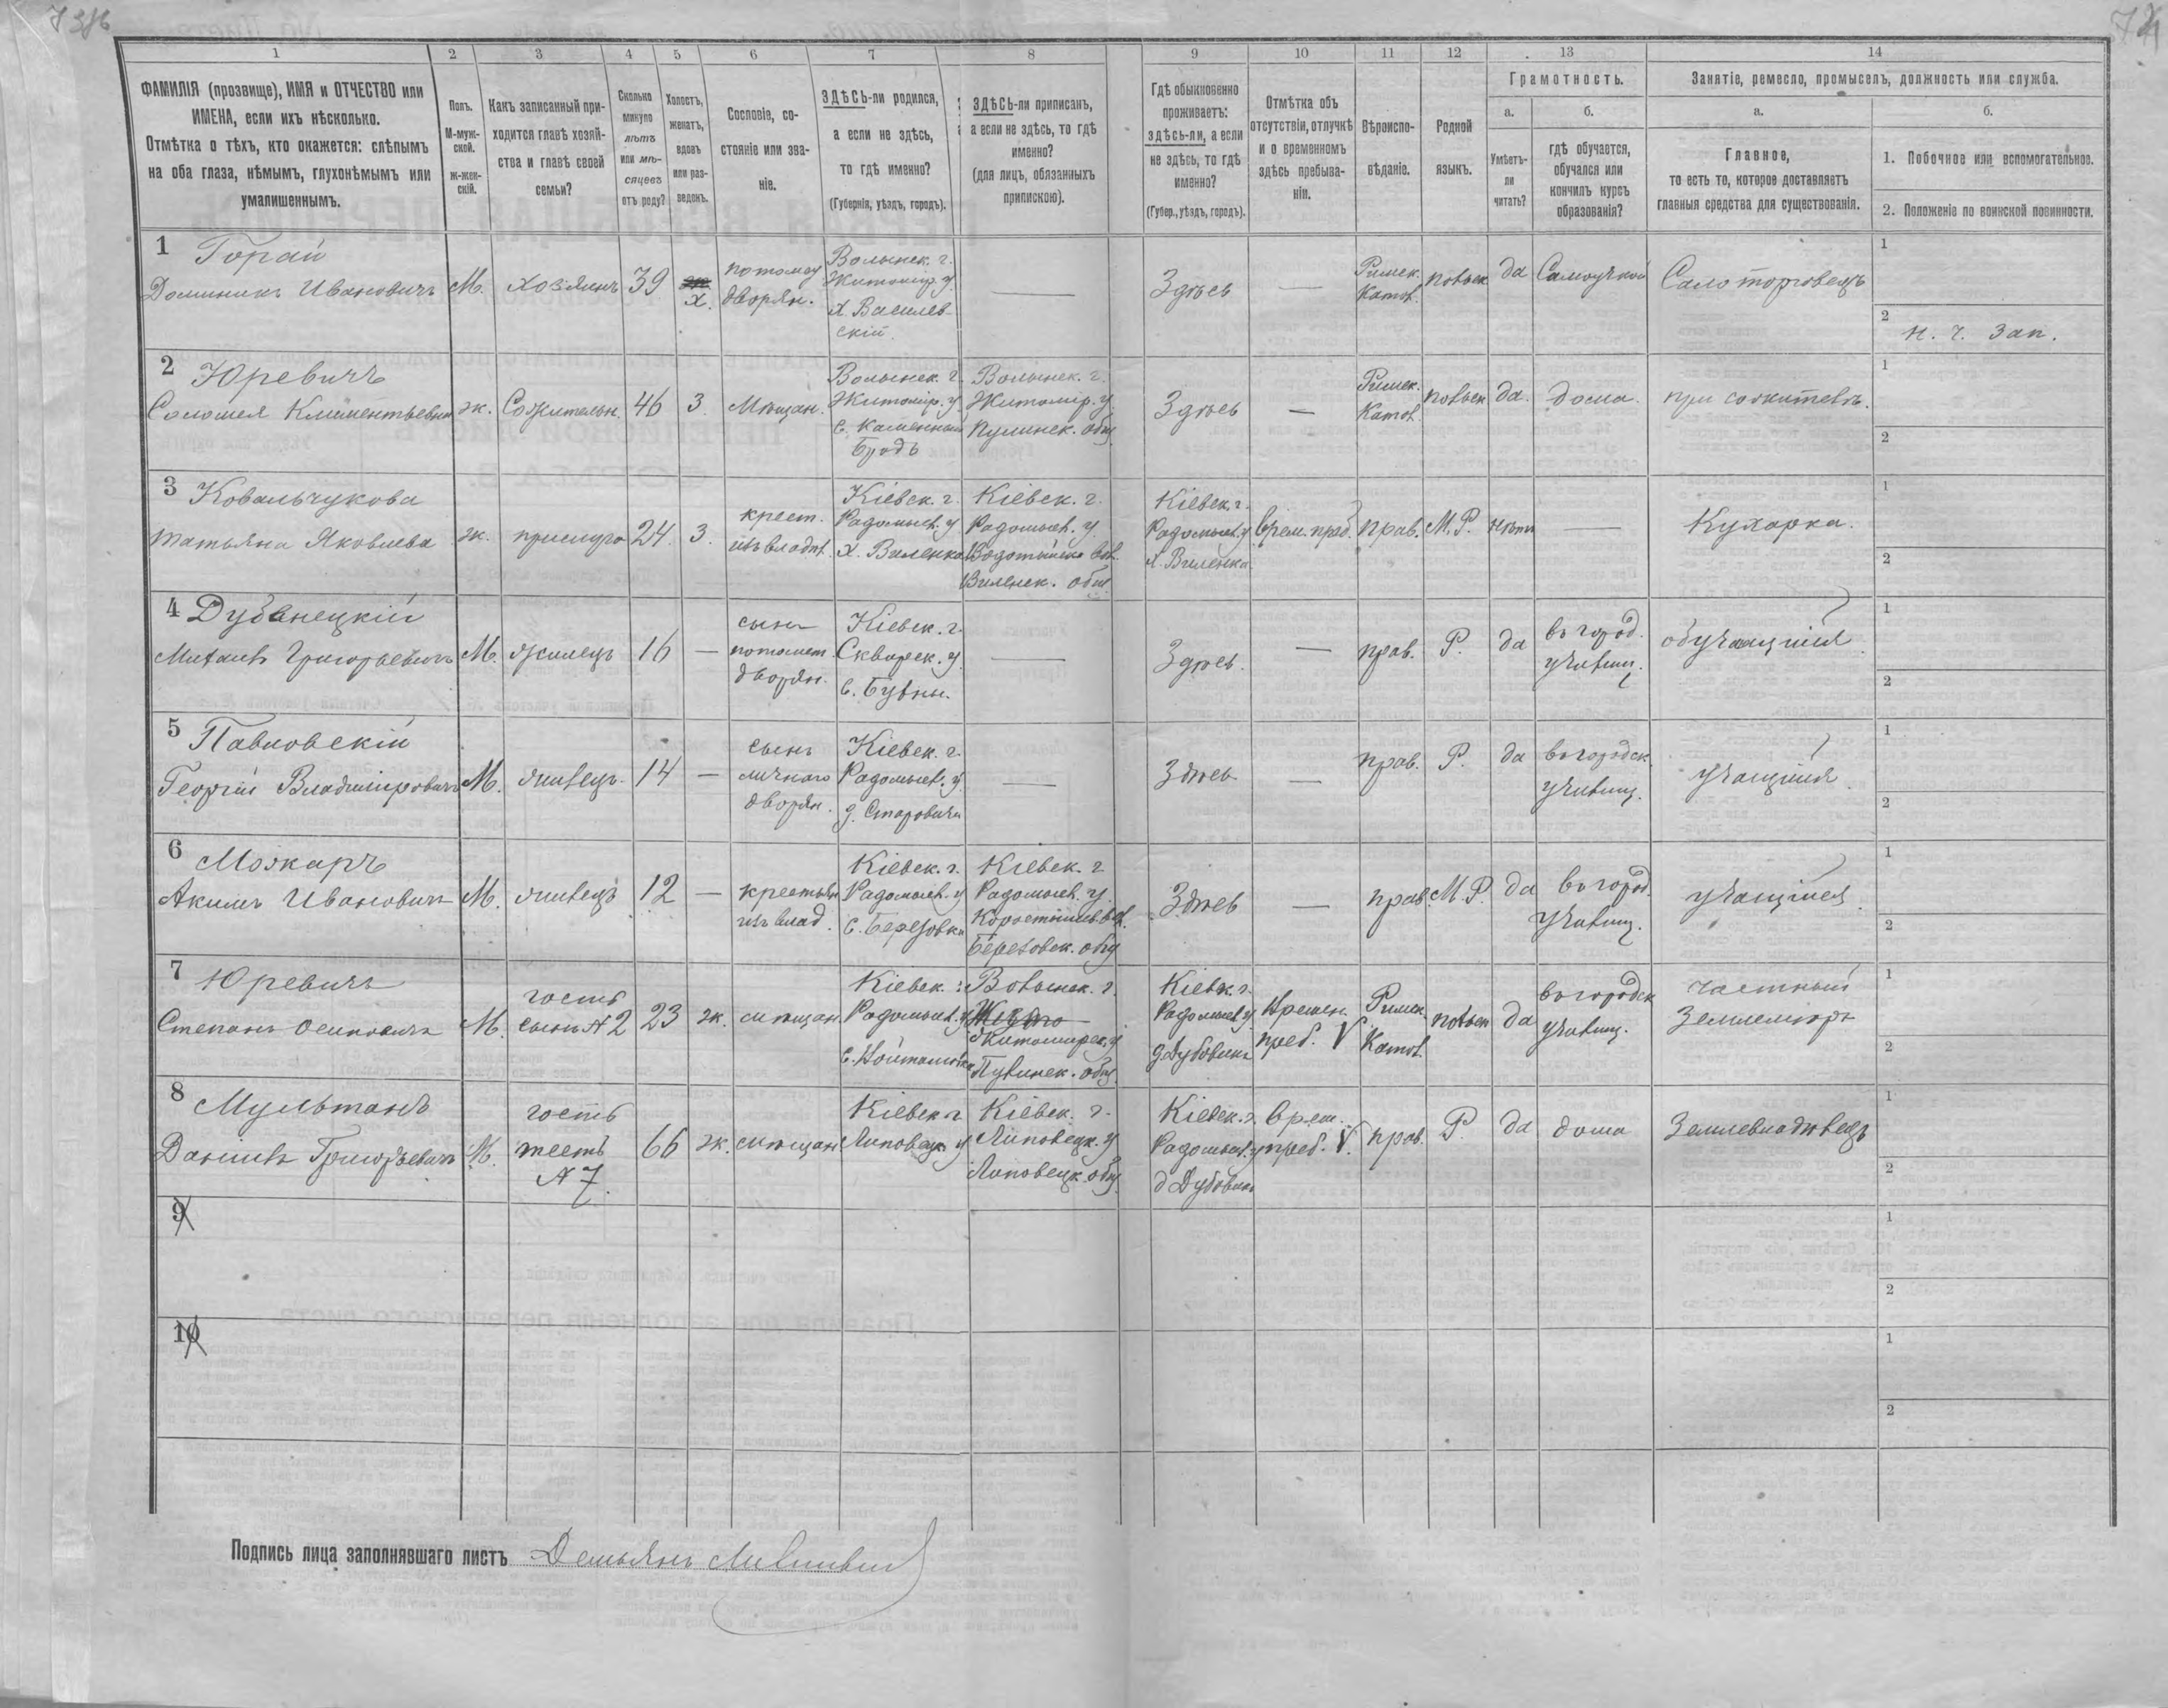 1 2 3 4 5 6 7 8 9 10 11 12 13 14
ФАМИЛІЯ (прозвище), ИМЯ и ОТЧЕСТВО или
ИМЕНА, если ихъ нѣсколько.
Отмѣтка о тѣхъ, кто окажется: слѣпымъ
на оба глаза, нѣмымъ, глухонѣмымъ или
умалишеннымъ.
Полъ.
М-муж-
ской.
Ж-жен-
скій.
Какъ записанный при-
ходится главѣ хозяй-
ства и главѣ своей
семьи?
Сколько
минуло
лѣтъ
или мѣ-
сяцевъ
отъ роду?
Холостъ,
женатъ,
вдовъ
или раз-
веденъ.
Сословіе, со-
стояніе или зва-
ніе.
ЗДѢСЬ-ли родился,
а если не здѣсь,
то гдѣ именно?
(Губернія, уѣздъ, городъ).
ЗДѢСЬ-ли приписанъ,
а если не здѣсь, то гдѣ
именно?
(для лицъ, обязанныхъ
припискою).
Гдѣ обыкновенно
проживаетъ:
здѣсь-ли, а если
не здѣсь, то гдѣ
именно?
(Губер., уѣздъ, городъ).
Отмѣтка объ
отсутствіи, отлучкѣ
и о временномъ
здѣсь пребыва-
ніи.
Вѣроиспо-
вѣданіе.
Родной
языкъ.
Грамотность.
а.
Умѣетъ-
ли
читать?
б.
гдѣ обучается,
обучался или
кончилъ курсъ
образованія?
Занятіе, ремесло, промыселъ, должность или служба.
а.
Главное,
то есть то, которое доставляетъ
главныя средства для существованія.
б.
1. Побочное или вспомогательное.
2. Положеніе по воинской повинности.
1 Горай
Доминикъ Ивановичъ М. хозяинъ 39 х.
потомст.
дворян.
Волынск. г.
Житомір. у.
х. Василев-
скій
—
Здѣсь —
Римск.
Катол.
польск да Самоучкой Салоторговецъ
1
2
н. ч. зап.
2 Юревичъ
Саломея Климентьевна ж. Сожительн. 46 З. Мѣщан.
Волынск. г.
Житомір. у.
с. Каменный
Бродъ
Волынск. г.
Житомір. у.
Пулинск. общ.
Здѣсь —
Римск.
Катол.
польск да. дома. при сожителѣ.
1
2
3 Ковальчукова
Татьяна Яковлева ж. прислуга 24. З.
крест.
изъ владѣл.
Кіевск. г.
Радомысл. у
х. Виленка
Кіевск. г.
Радомысл. у.
Вол.
Виленск. общ.
Кіевск. г.
Радомысл. у
х. Виленка
Врем. преб. прав. М. Р. нѣтъ — Кухарка.
1
2
4 Дубанецкій
Михаилъ Григорьевичъ М. жилецъ 16 —
сынъ
потомст.
дворян.
Кіевск. г.
Сквирск. у.
с. Буйны.
—
Здѣсь. — прав. Р. да
въ город.
училищ.
обучающійся.
1
2
5 Павловскій
Георгій Владиміровичъ М. жилецъ. 14 —
сынъ
личнаго
дворян.
Кіевск. г.
Радомысл. у.
д. Старовичи
—
Здѣсь — прав. Р. да
въ городск.
училищ.
учащійся.
1
2
6 Можаръ
Акимъ Ивановичъ М. жилецъ 12 —
крестьян
изъ влад.
Кіевск. г.
Радомысл. у
с. Березовка
Кіевск. г
Радомысл. у.
Коростышев. вол.
Березовск. общ
Здѣсь — прав. М. Р. да
въ город.
училищ.
учащійся.
1
2
7 Юревичъ
Степанъ Осиповичъ М.
гость
сынъ № 2
23 ж. мѣщан.
Кіевск. г.
Радомысл. у
Волынск. г.
Житомирск. у
Пулинск. общ.
Кіевск. г.
Радомысл. у
д. Дубовикъ
Времен.
преб. V
Римск.
Катол.
польск да
въ городск
училищ.
частный
Землемѣръ
1
2
8 Мультанъ
Даніилъ Григорьевичъ М.
гость
тесть
№ 7.
66 ж. мѣщан
Кіевск г
Липовецк. у
Кіевск. г.
Липовецк. у
Липовецк. общ
Кіевск. г.
Радомысл. у
д Дубовикъ
Врем.
преб. V.
прав. Р. да дома Землевладѣлецъ
1
2
9
1
2
10
1
2
Подпись лица заполнявшаго листъ Демьянъ